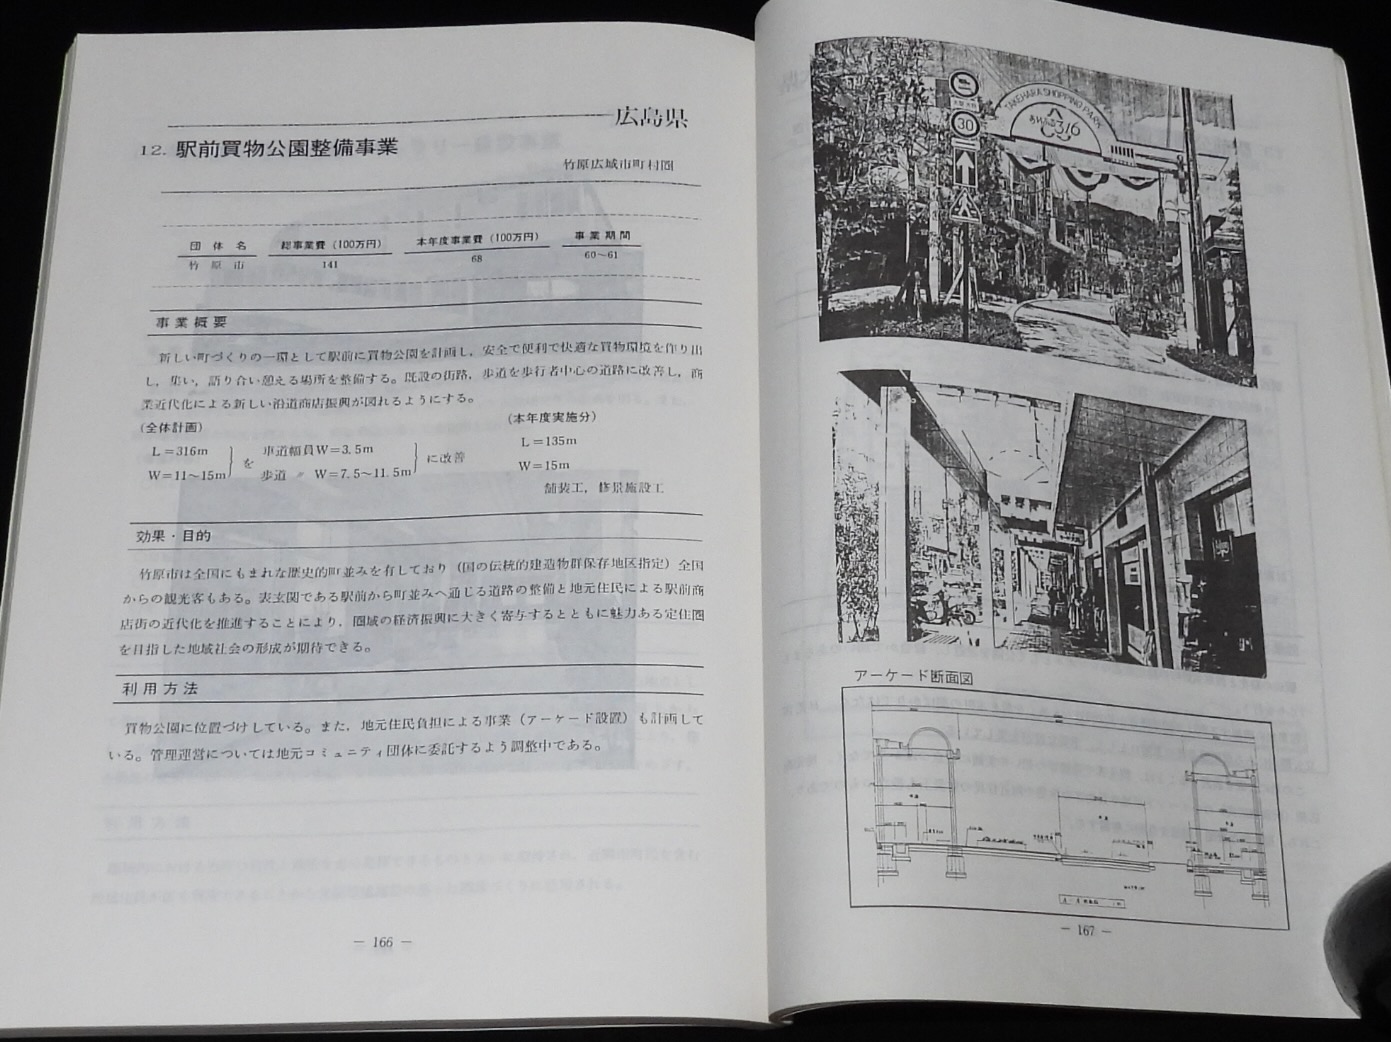 広島県
12. 駅前買物公園整備事業
竹原広域市町村圏
団体名 総事業費(100万円) 本年度事業費(100万円) 事業期間
竹原市 141 68 60〜61
事業概要
新しい町づくりの一環として駅前に買物公園を計画し，安全で便利で快適な買物環境を作り出
し，集い，語り合い憩える場所を整備する。既設の街路，歩道を歩行者中心の道路に改善し，商
業近代化による新しい沿道商店振興が図れるようにする。
(全体計画) (本年度実施分)
L＝316m を 車道幅員W＝3.5m に改善 L＝135m
W＝11〜15m 歩道 〃 W＝7.5〜11.5m W＝15m
舗装工，修景施設工
効果・目的
竹原市は全国にもまれな歴史的町並みを有しており（国の伝統的建造物群保存地区指定）全国
からの観光客もある。表玄関である駅前から町並みへ通じる道路の整備と地元住民による駅前商
店街の近代化を推進することにより，圏域の経済振興に大きく寄与するとともに魅力ある定住圏
を目指した地域社会の形成が期待できる。
利用方法
買物公園に位置づけしている。また，地元住民負担による事業（アーケード設置）も計画して
いる。管理運営については地元コミュニティ団体に委託するよう調整中である。
― 166 ―
TAKEHARA SHOPPING PARK
あいふる316
30
アーケード断面図
― 167 ―